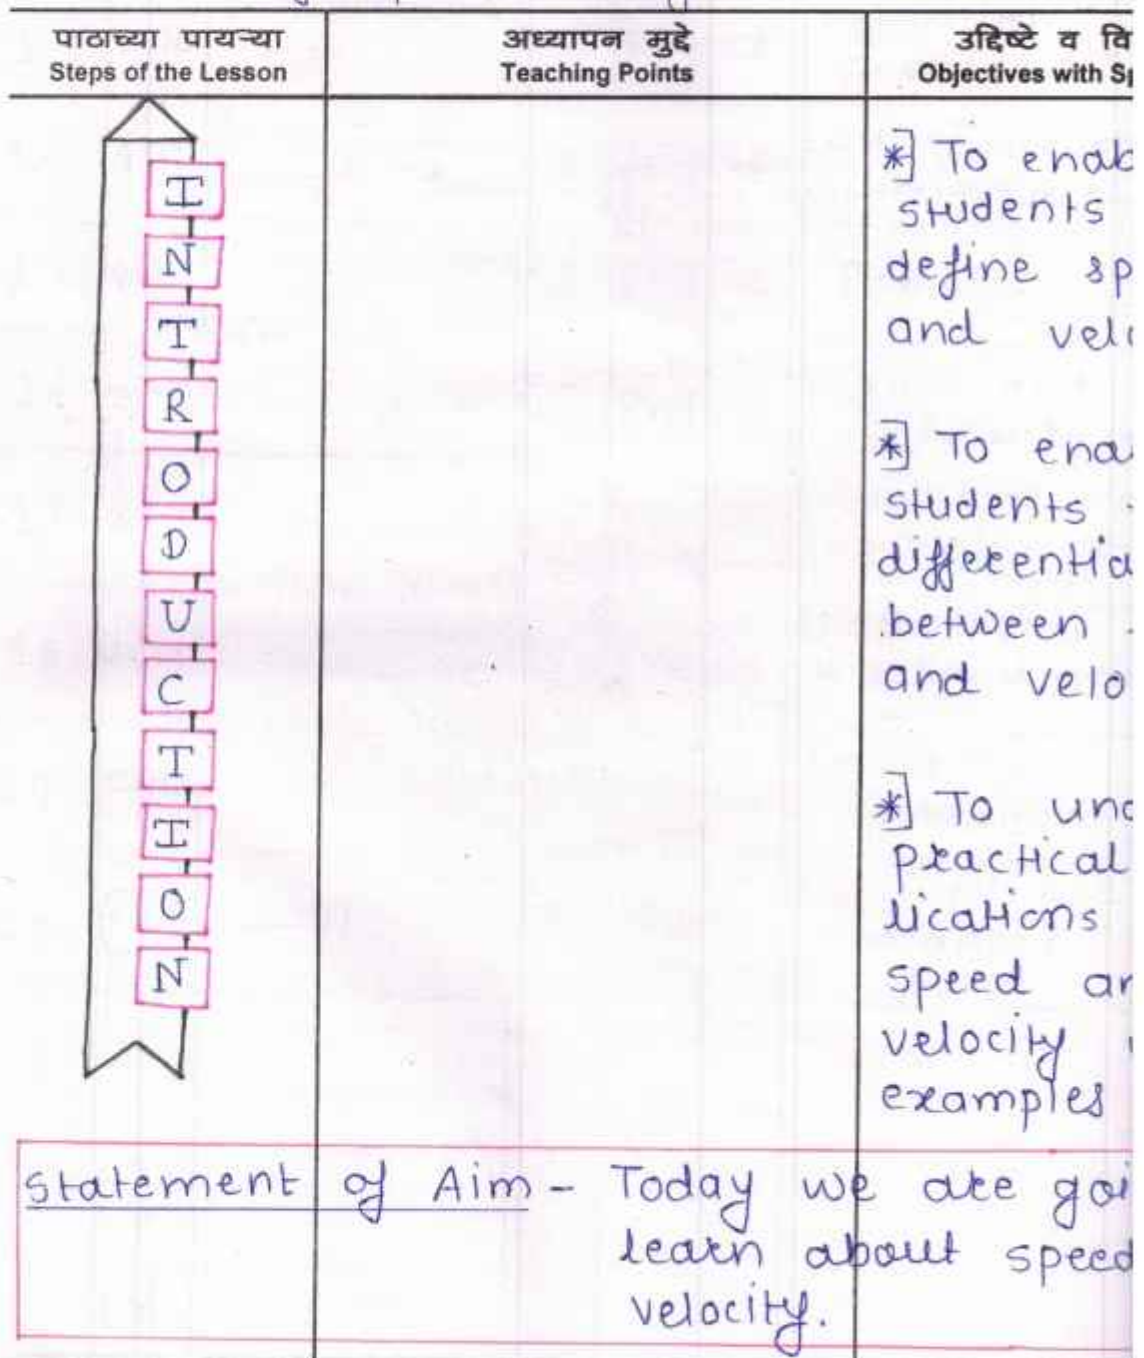 पाठाच्या पायऱ्या
Steps of the Lesson
अध्यापन मुद्दे
Teaching Points
उद्दिष्टे व वि
Objectives with Sp
INTRODUCTION
*] To enab
students
define sp
and velo
*] To ena
students
differentia
between
and velo
*] To und
practical
lications
speed an
velocity
examples
Statement of Aim - Today we are goi
learn about speed
velocity.